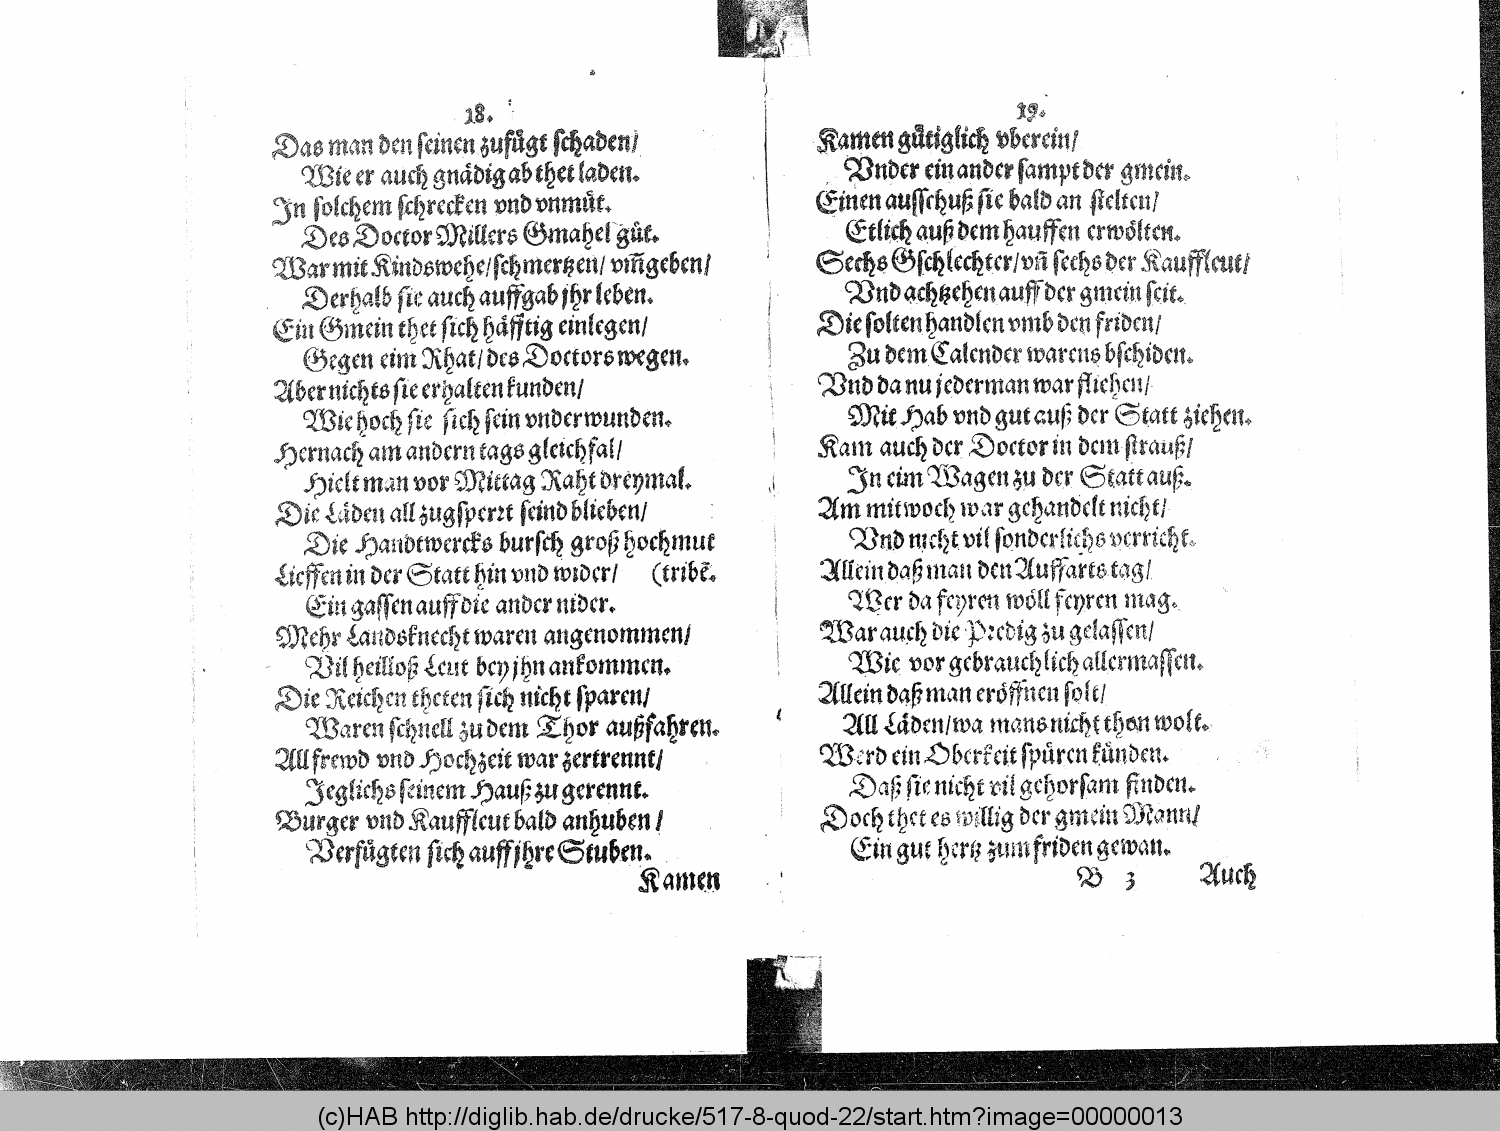 18.
Das man den seinen zufuͤgt schaden/
Wie er auch gnaͤdig ab thet laden.
In solchem schrecken vnd vnmuͤt.
Des Doctor Millers Gmahel guͤt.
War mit Kindswehe/schmertzen/ vm̃geben/
Derhalb sie auch auffgab jhr leben.
Ein Gmein thet sich haͤfftig einlegen/
Gegen eim Rhat/ des Doctors wegen.
Aber nichts sie erhalten kunden/
Wie hoch sie sich sein vnderwunden.
Hernach am andern tags gleichfal/
Hielt man vor Mittag Raht dreymal.
Die Laͤden all zugsperrt seind blieben/
Die Handtwercks bursch groß hochmut
Lieffen in der Statt hin vnd wider/ (tribẽ.
Ein gassen auff die ander nider.
Mehr Landsknecht waren angenommen/
Vil heilloß Leut bey jhn ankommen.
Die Reichen theten sich nicht sparen/
Waren schnell zu dem Thor außfahren.
All frewd vnd Hochzeit war zertrennt/
Jeglichs seinem Hauß zu gerennt.
Burger vnd Kauffleut bald anhuben/
Verfuͤgten sich auff jhre Stuben.
Kamen
19.
Kamen guͤtiglich vberein/
Vnder ein ander sampt der gmein.
Einen ausschuß sie bald an stelten/
Etlich auß dem hauffen erwoͤlten.
Sechs Gschlechter/vñ sechs der Kauffleut/
Vnd achtzehen auff der gmein seit.
Die solten handlen vmb den friden/
Zu dem Calender warens bschiden.
Vnd da nu jederman war fliehen/
Mit Hab vnd gut auß der Statt ziehen.
Kam auch der Doctor in dem strauß/
In eim Wagen zu der Statt auß.
Am mitwoch war gehandelt nicht/
Vnd nicht vil sonderlichs verricht.
Allein daß man den Auffarts tag/
Wer da feyren woͤll feyren mag.
War auch die Predig zu gelassen/
Wie vor gebrauchlich allermassen.
Allein daß man eroͤffnen solt/
All Laͤden/wa mans nicht thon wolt.
Werd ein Oberkeit spuͤren kuͤnden.
Daß sie nicht vil gehorsam finden.
Doch thet es willig der gmein Mann/
Ein gut hertz zum friden gewan.
B 3 Auch
(c)HAB http://diglib.hab.de/drucke/517-8-quod-22/start.htm?image=00000013